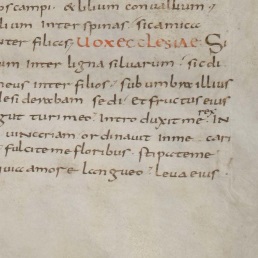 os campi · & lilium conuallium ·
lium inter spinas · sic amica
nter filias · Uox ecclesiae · Si
um inter ligna siluarum · sic di
meus inter filios · sub umbra illius
desiderabam sedi · et fructus eius
gut turi meo · Intro duxit me rex · IN
uinariam ordinauit in me cari
fulcite me floribus · stipate me
quia amore langueo · Leua eius ·